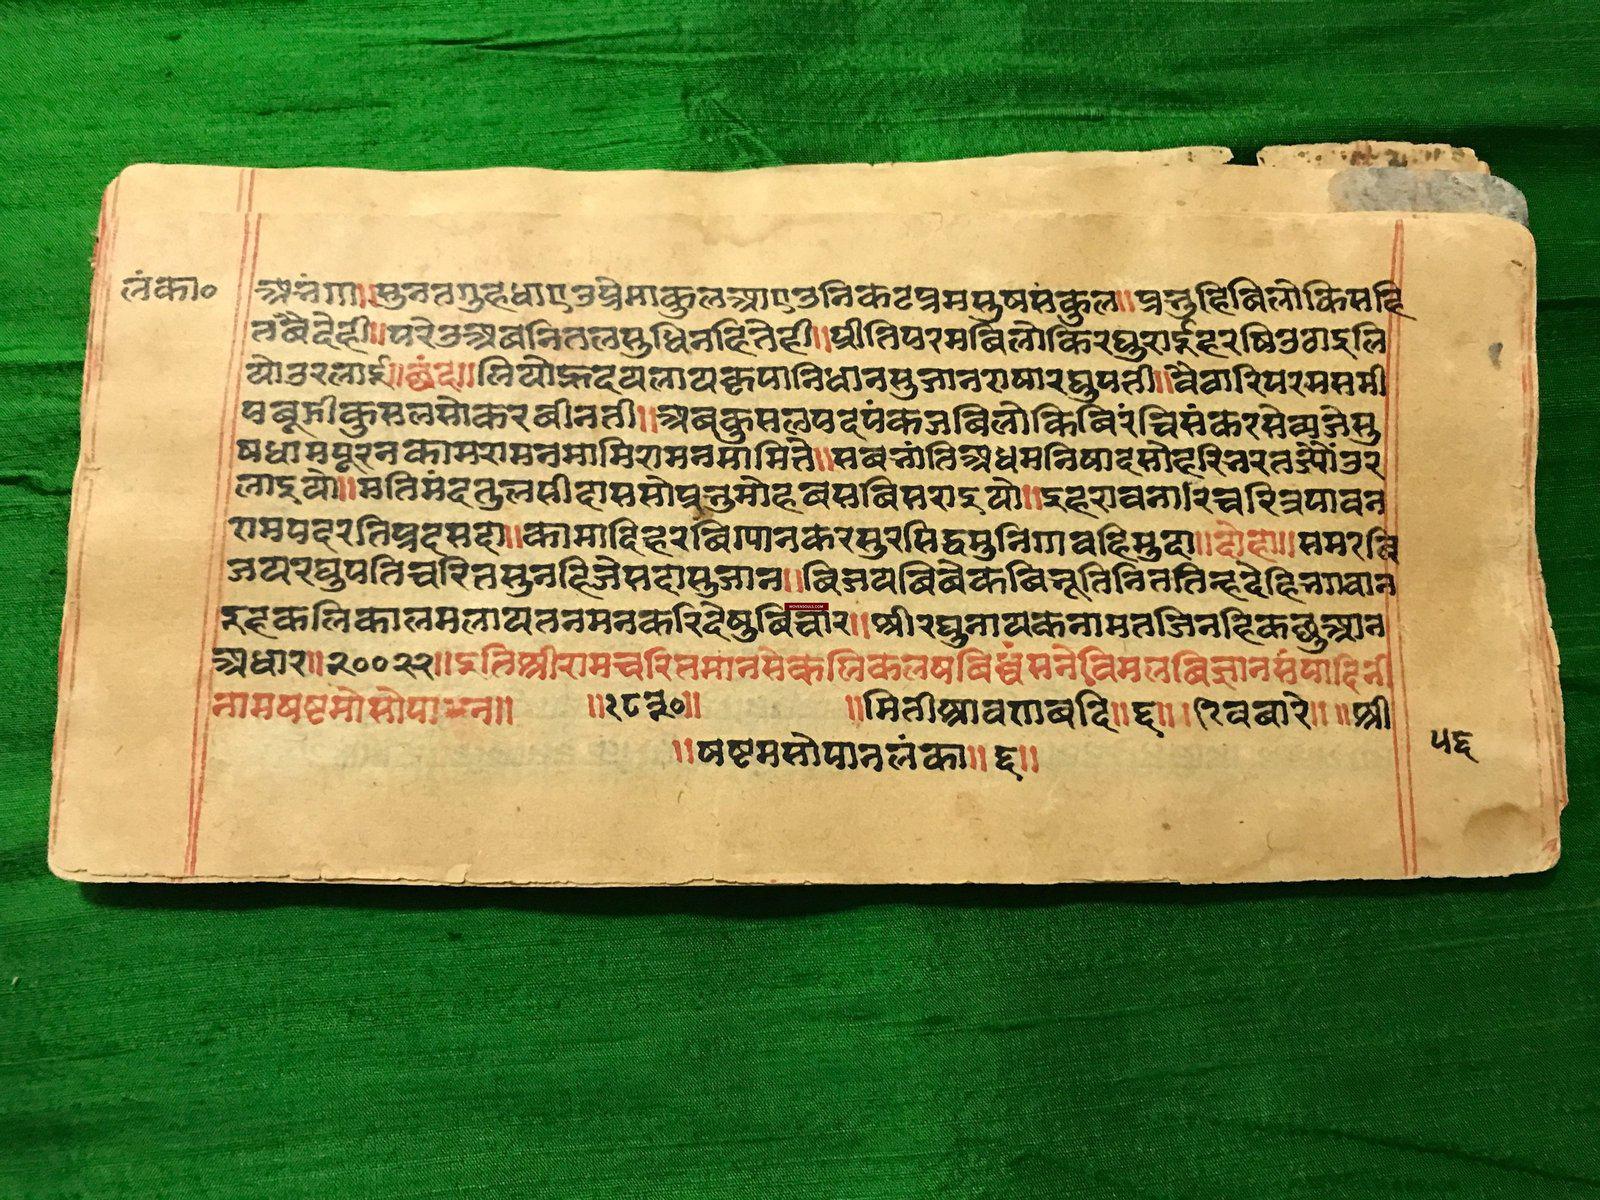 लंका०
अनंगा॥सुनतगुहधाएउप्रेमाकुलआएउनिकटपरमसुषसंकुल॥प्रभुहिबिलोकिसहि
तबैदेही॥परेउअवनितलसुधिनहितेही॥प्रीतिपरमबिलोकिरघुराईहरषिउठाइलि
योउरलाई॥छंद॥लियोहृदयलायकृपानिधानसुजानरायारघुपती॥बैठारिपरमसमी
पबूझीकुसलसोकरबीनती॥अबकुसलपदपंकजबिलोकिबिरंचिसंकरसेब्यजेसु
षधामपूरनकामरामनमामिरामनमामिते॥सबभांतिअधमनिषादसोहरिभरतज्यौंउर
लाइयो॥मतिमंदतुलसीदाससोप्रभुमोहबसबिसराइयो॥इहरावनारिचरित्रपावन
रामपदरतिप्रदसदा॥कामादिहरबिग्यानकरसुरसिद्धमुनिगावहिमुदा॥दोहा॥समरबि
जयरघुपतिचरितसुनहिजेसदासुजान॥बिजयबिबेकबिभूतिनिततिन्हदेहिभगवान
इहकलिकालमलायतनमनकरिदेषुबिचार॥श्रीरघुनायकनामतजिनहिकछुआन
अधार॥२००२२॥इतिश्रीरामचरितमानसेकलिकलषबिध्वंसनेविमलबिज्ञानसंपादिनी
नामषष्टमोसोपान॥ ॥१८३०॥ ॥मितीश्रावणबदि॥६॥रविबारे॥॥श्री
॥षष्टमसोपानलंका॥६॥
५६
WOVENSOULS.COM